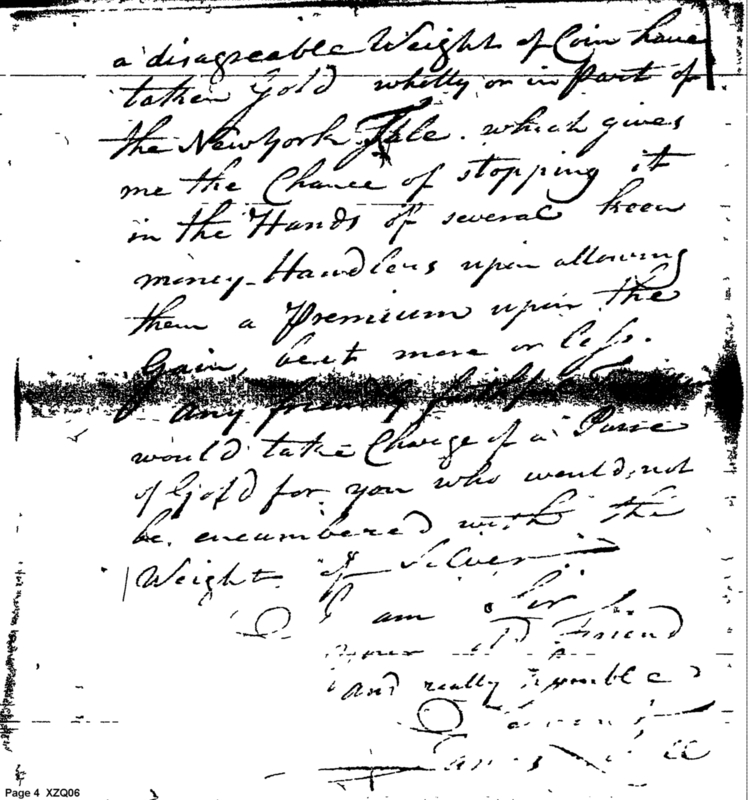 a disagreable Weight of Coin have
taken Gold wholly or in Part of
the New york Tale. which gives
me the Chance of stopping it
in the Hands of several keen
money-Handlers upon allowing
them a Premium upon the
Gain, be it more or less.
any friendly
would take Charge of a Purse
of Gold for you who would not
be encumbered with the
Weight of Silver
I am Sir
your old Friend
and really humble
Servant
Page 4 XZQ06